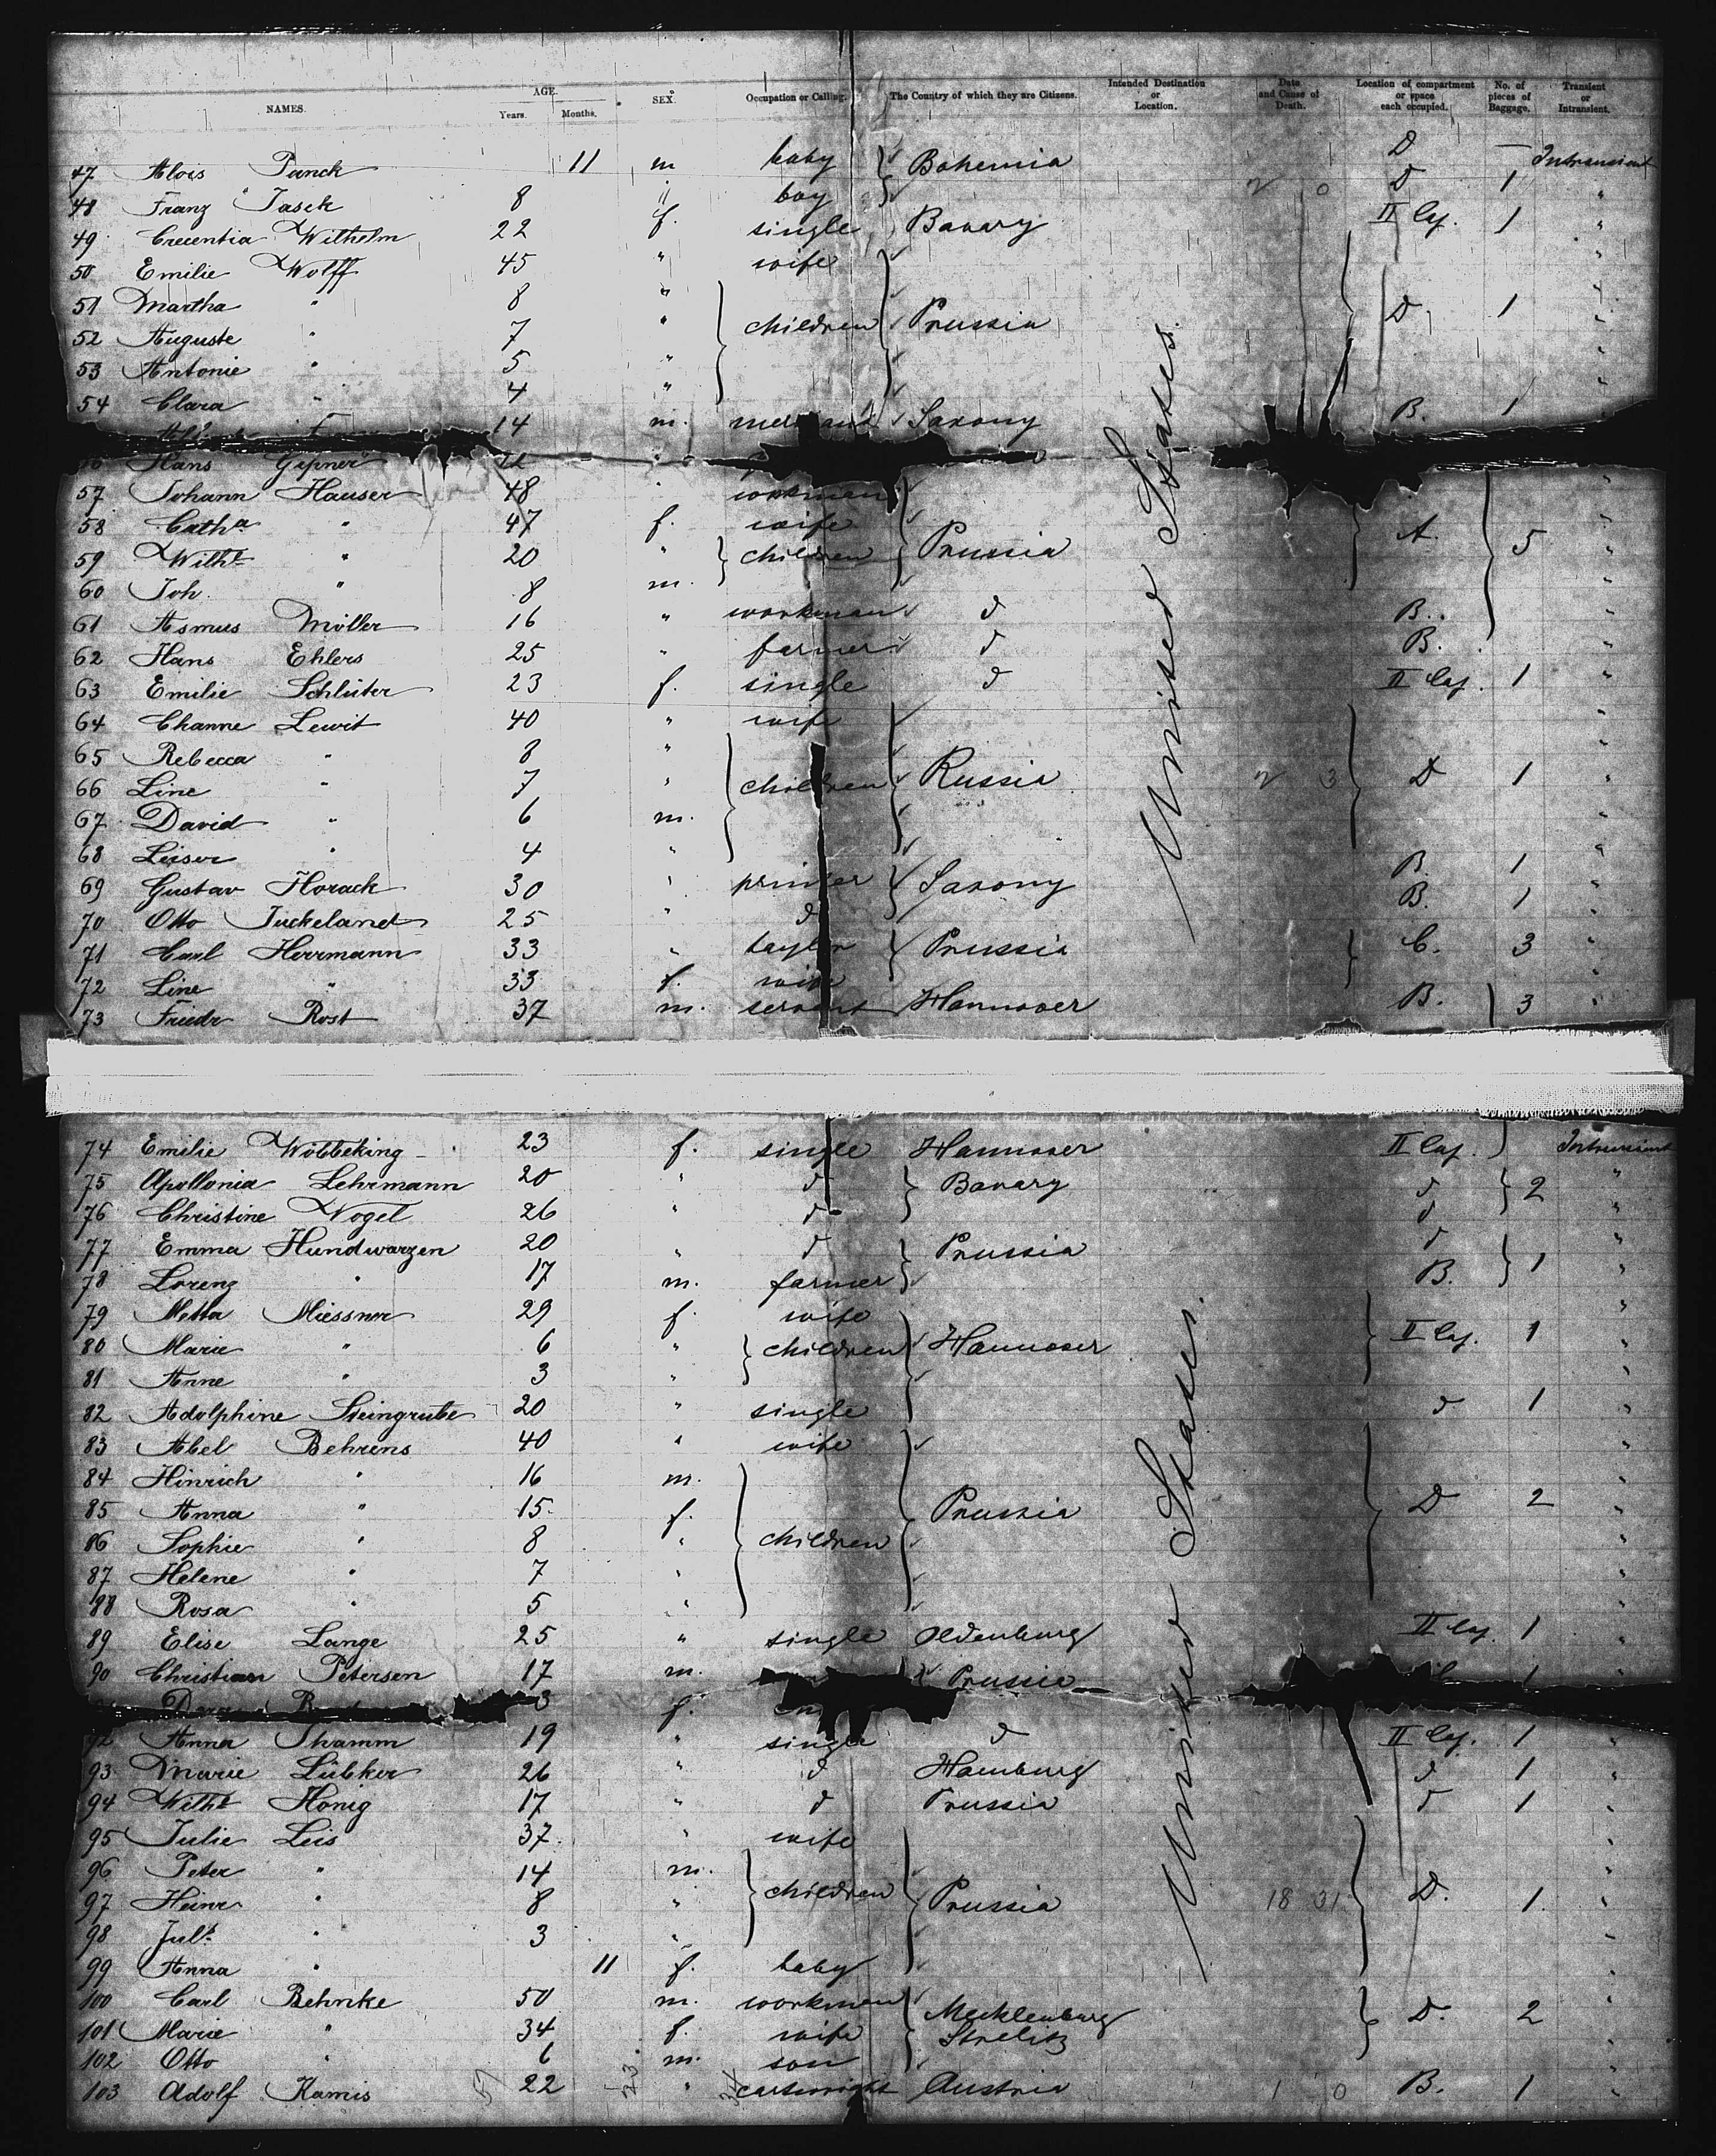 NAMES. AGE. Years. Months. SEX. Occupation or Calling. The Country of which they are Citizens. Intended Destination or Location. Date and Cause of Death. Location of compartment or space each occupied. No. of pieces of Baggage. Transient or Intransient.
47 Alois Panck 11 m baby Bohemia D — Intransient
48 Franz Jasek 8 " boy D 1 "
49 Crecentia Wilhelm 22 f. single Bavary II Caj. 1 "
50 Emilie Wolff 45 " wife "
51 Martha " 8 " children Prussia D 1 "
52 Auguste " 7 " "
53 Antonie " 5 " "
54 Clara " 4 " "
14 m. Saxony B. 1
Hans Gipner
57 Johann Hauser 48 " workman "
58 Catha " 47 f. wife Prussia A. 5 "
59 Wilhe " 20 " children "
60 Joh. " 8 m. "
61 Asmus Möller 16 " workman d B. "
62 Hans Ehlers 25 " farmer d B. "
63 Emilie Schlüter 23 f. single d II Caj. 1 "
64 Channe Lewit 40 " wife "
65 Rebecca " 8 " children Russia "
66 Line " 7 " D 1 "
67 David " 6 m. "
68 Leiser " 4 " "
69 Gustav Horack 30 " printer Saxony B. 1 "
70 Otto Juckeland 25 " d B. 1 "
71 Carl Herrmann 33 " taylor Prussia C. 3 "
72 Line " 33 f. wife "
73 Friedr Rost 37 m. servant Hannover B. 3 "
United States.
74 Emilie Wöbbeking 23 f. single Hannover II Caj. Intransient
75 Apollonia Lehrmann 20 " d Bavary d 2 "
76 Christine Vogel 26 " d d "
77 Emma Hundwarzen 20 " d Prussia d 1 "
78 Lorenz " 17 m. farmer B. "
79 Metta Miessner 29 f. wife Hannover II Caj. 1 "
80 Marie " 6 " children "
81 Anne " 3 " "
82 Adolphine Steingrube 20 " single d 1 "
83 Abel Behrens 40 " wife "
84 Hinrich " 16 m. children Prussia D 2 "
85 Anna " 15 f. "
86 Sophie " 8 " "
87 Helene " 7 " "
88 Rosa " 5 " "
89 Elise Lange 25 " single Oldenburg II Caj. 1 "
90 Christian Petersen 17 m. Prussia 1 "
3 f.
92 Anna Thamm 19 " single d II Caj. 1 "
93 Marie Lübker 26 " d Hamburg d 1 "
94 Wilhe Honig 17 " d Prussia d 1 "
95 Julie Leis 37 " wife "
96 Peter " 14 m. children Prussia "
97 Heinr " 8 " 18 31 D. 1 "
98 Juls " 3 " "
99 Anna " 11 f. baby "
100 Carl Behnke 50 m. workman Mecklenburg Strelitz D. 2 "
101 Marie " 34 f. wife "
102 Otto " 6 m. son "
103 Adolf Kamis 22 " cartwright Austria 1 0 B. 1 "
United States.